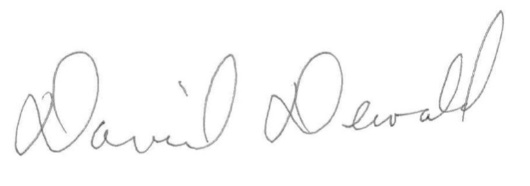 David Dewald